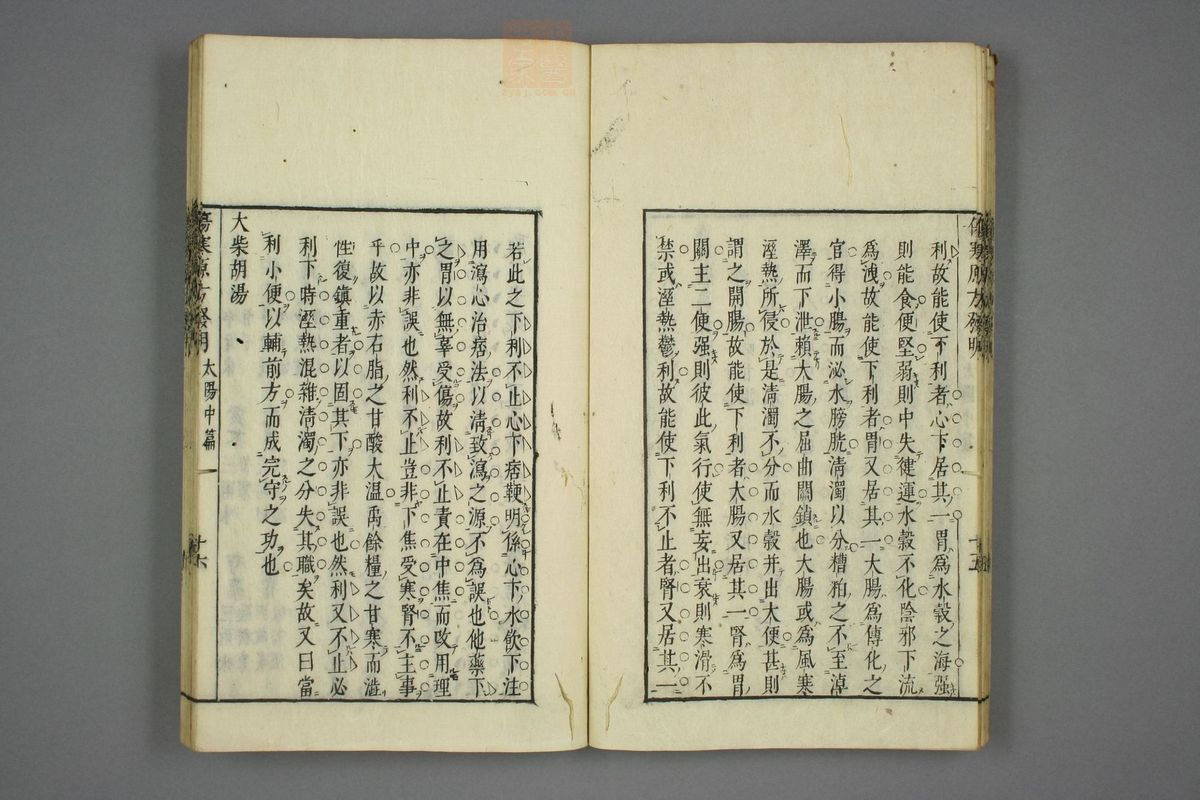 利故能使下利者心下居其一胃爲水穀之海强
則能食便堅弱則中失健運水穀不化陰邪下流
爲洩故能使下利者胃又居其一大腸爲傳化之
官得小腸而泌水膀胱清濁以分糟粕之不至淖
澤而下泄賴大腸之屈曲關鎖也大腸或爲風寒
溼熱所侵於是清濁不分而水穀并出大便甚則
謂之開腸故能使下利者大腸又居其一腎爲胃
關主二便强則彼此氣行使無妄出衰則寒滑不
禁或溼熱鬱利故能使下利不止者腎又居其一
十五
若此之下利不止心下痞鞕明係心下水飲下注
用瀉心治痞法以清致瀉之源不爲誤也他藥下
之胃以無辜受傷故利不止責在中焦而攺用理
中亦非誤也然利不止豈非下焦受寒腎不主事
乎故以赤石脂之甘酸大温禹餘糧之甘寒而澁
性復鎮重者以固其下亦非誤也然利又不止必
利下時溼熱混雜清濁之分失其職矣故又曰當
利小便以輔前方而成完守之功也
大柴胡湯
傷寒原方發明 太陽中篇 十六